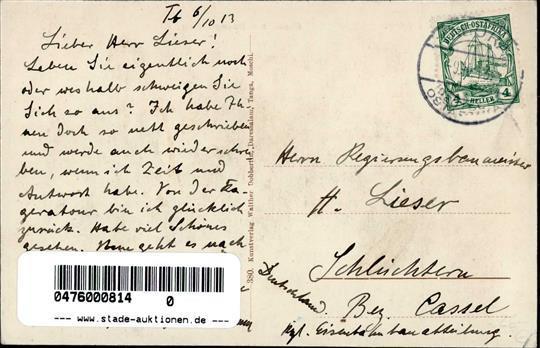 Tb 6/10 13
Lieber Herr Lieser!
Leben Sie eigentlich noch
oder weshalb schweigen Sie
Sich so aus? Ich habe Ih-
nen doch so nett geschrieben
und werde auch wiederschrei-
ben, wenn ich Zeit und
Antwort habe. Von der
geratour bin ich glücklich
zurück. Habe viel Schönes
gesehen. geht es nach
380. Kunstverlag Walther Dobbertin, Daressalam, Tanga, Moschi.
DEUTSCH-OSTAFRIKA
4 HELLER 4
Herrn Regierungsbaumeister
H. Lieser
Schlüchtern
Deutschland. Bez. Cassel
Kgl. Eisenbahnbauabteilung.
0476000814 0
--- www.stade-auktionen.de ---